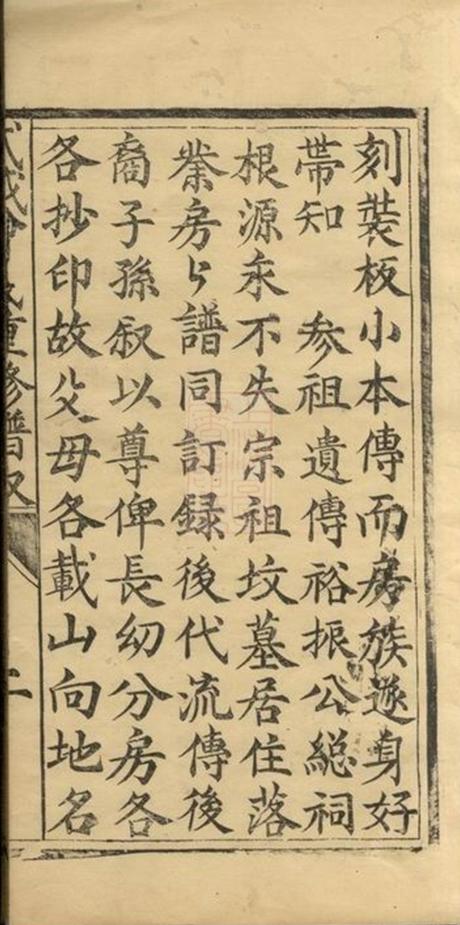 刻裝板小本傳而房族遂身好
帶知 参祖遺傳裕振公緫祠
根源永不失宗祖坟墓居住落
業房々譜同訂録後代流傳後
裔子孫叙以尊俾長幼分房各
各抄印故父母各載山向地名
重修譜叙
二